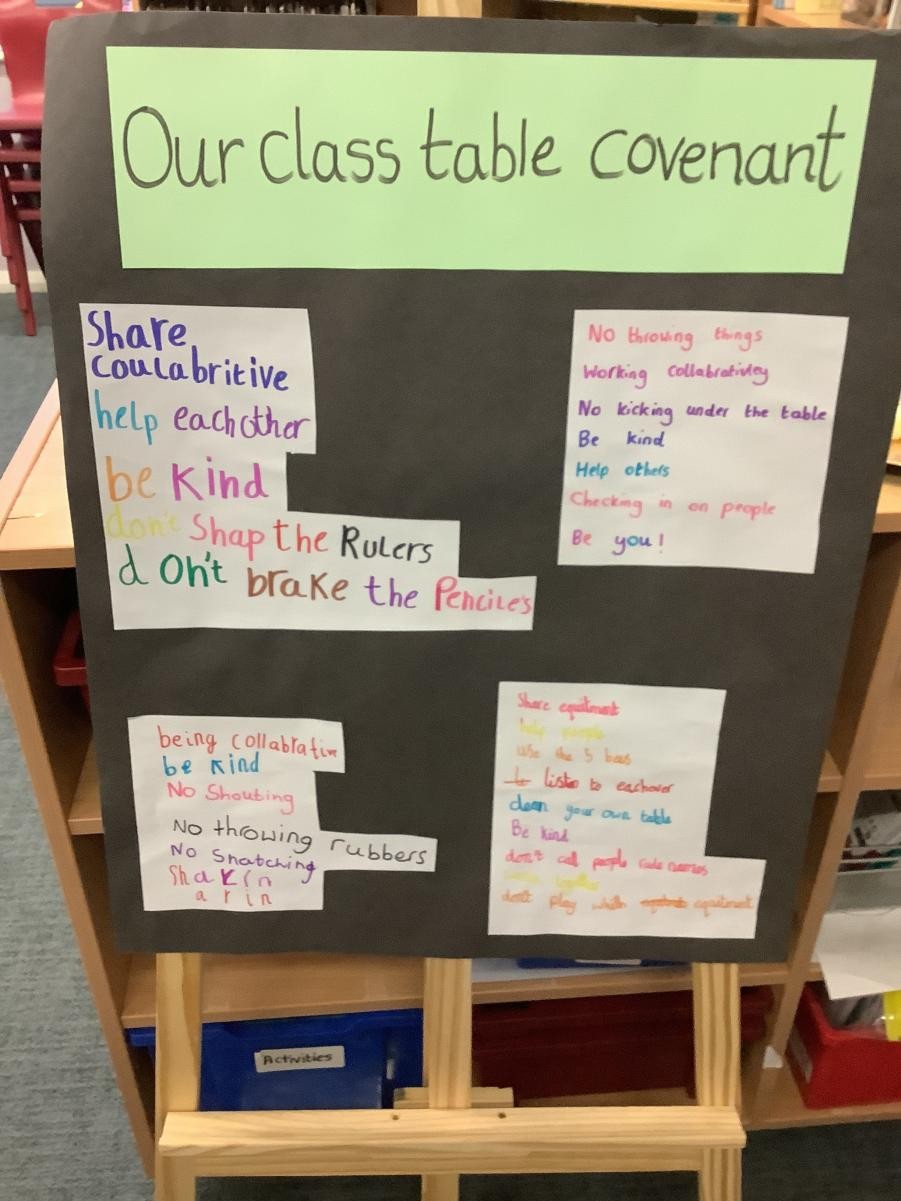 Our class table covenant
Share
coulabritive
help eachother
be kind
don't Shap the Rulers
d on't brake the Penciles
No throwing things
Working collabrativley
No kicking under the table
Be kind
Help others
Checking in on people
Be you!
being collabrativ
be kind
No Shouting
No throwing rubbers
No Snatching
Sharin
arin
Share equitment
help people
use the 5 bees
listen to eachover
clean your own table
Be kind
don't call people rude names
don't play whith equitment
Activities